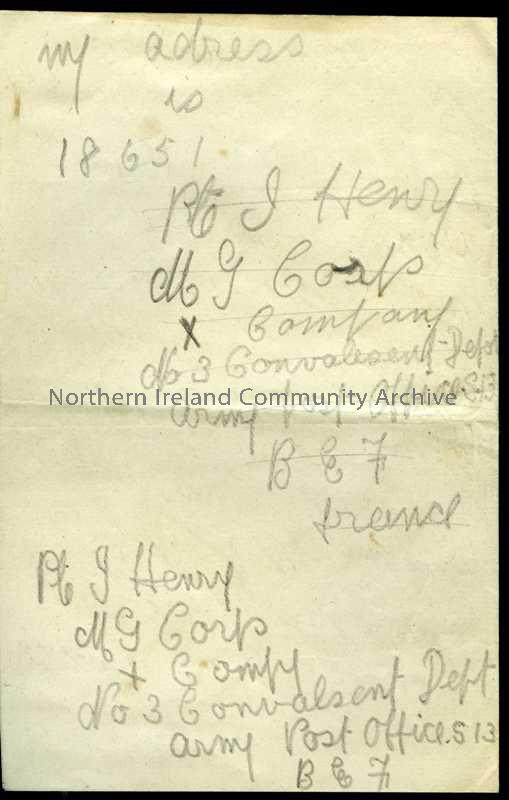 my adress
is
18651
Pte J Henry
M G Corp
X Company
No 3 Convalesent Dept
Northern Ireland Community Archive
army Post Office S 13
B E F
france
Pte J Henry
M G Corp
X Compy
No 3 Convalsent Dept
army Post Office. S 13
B E F